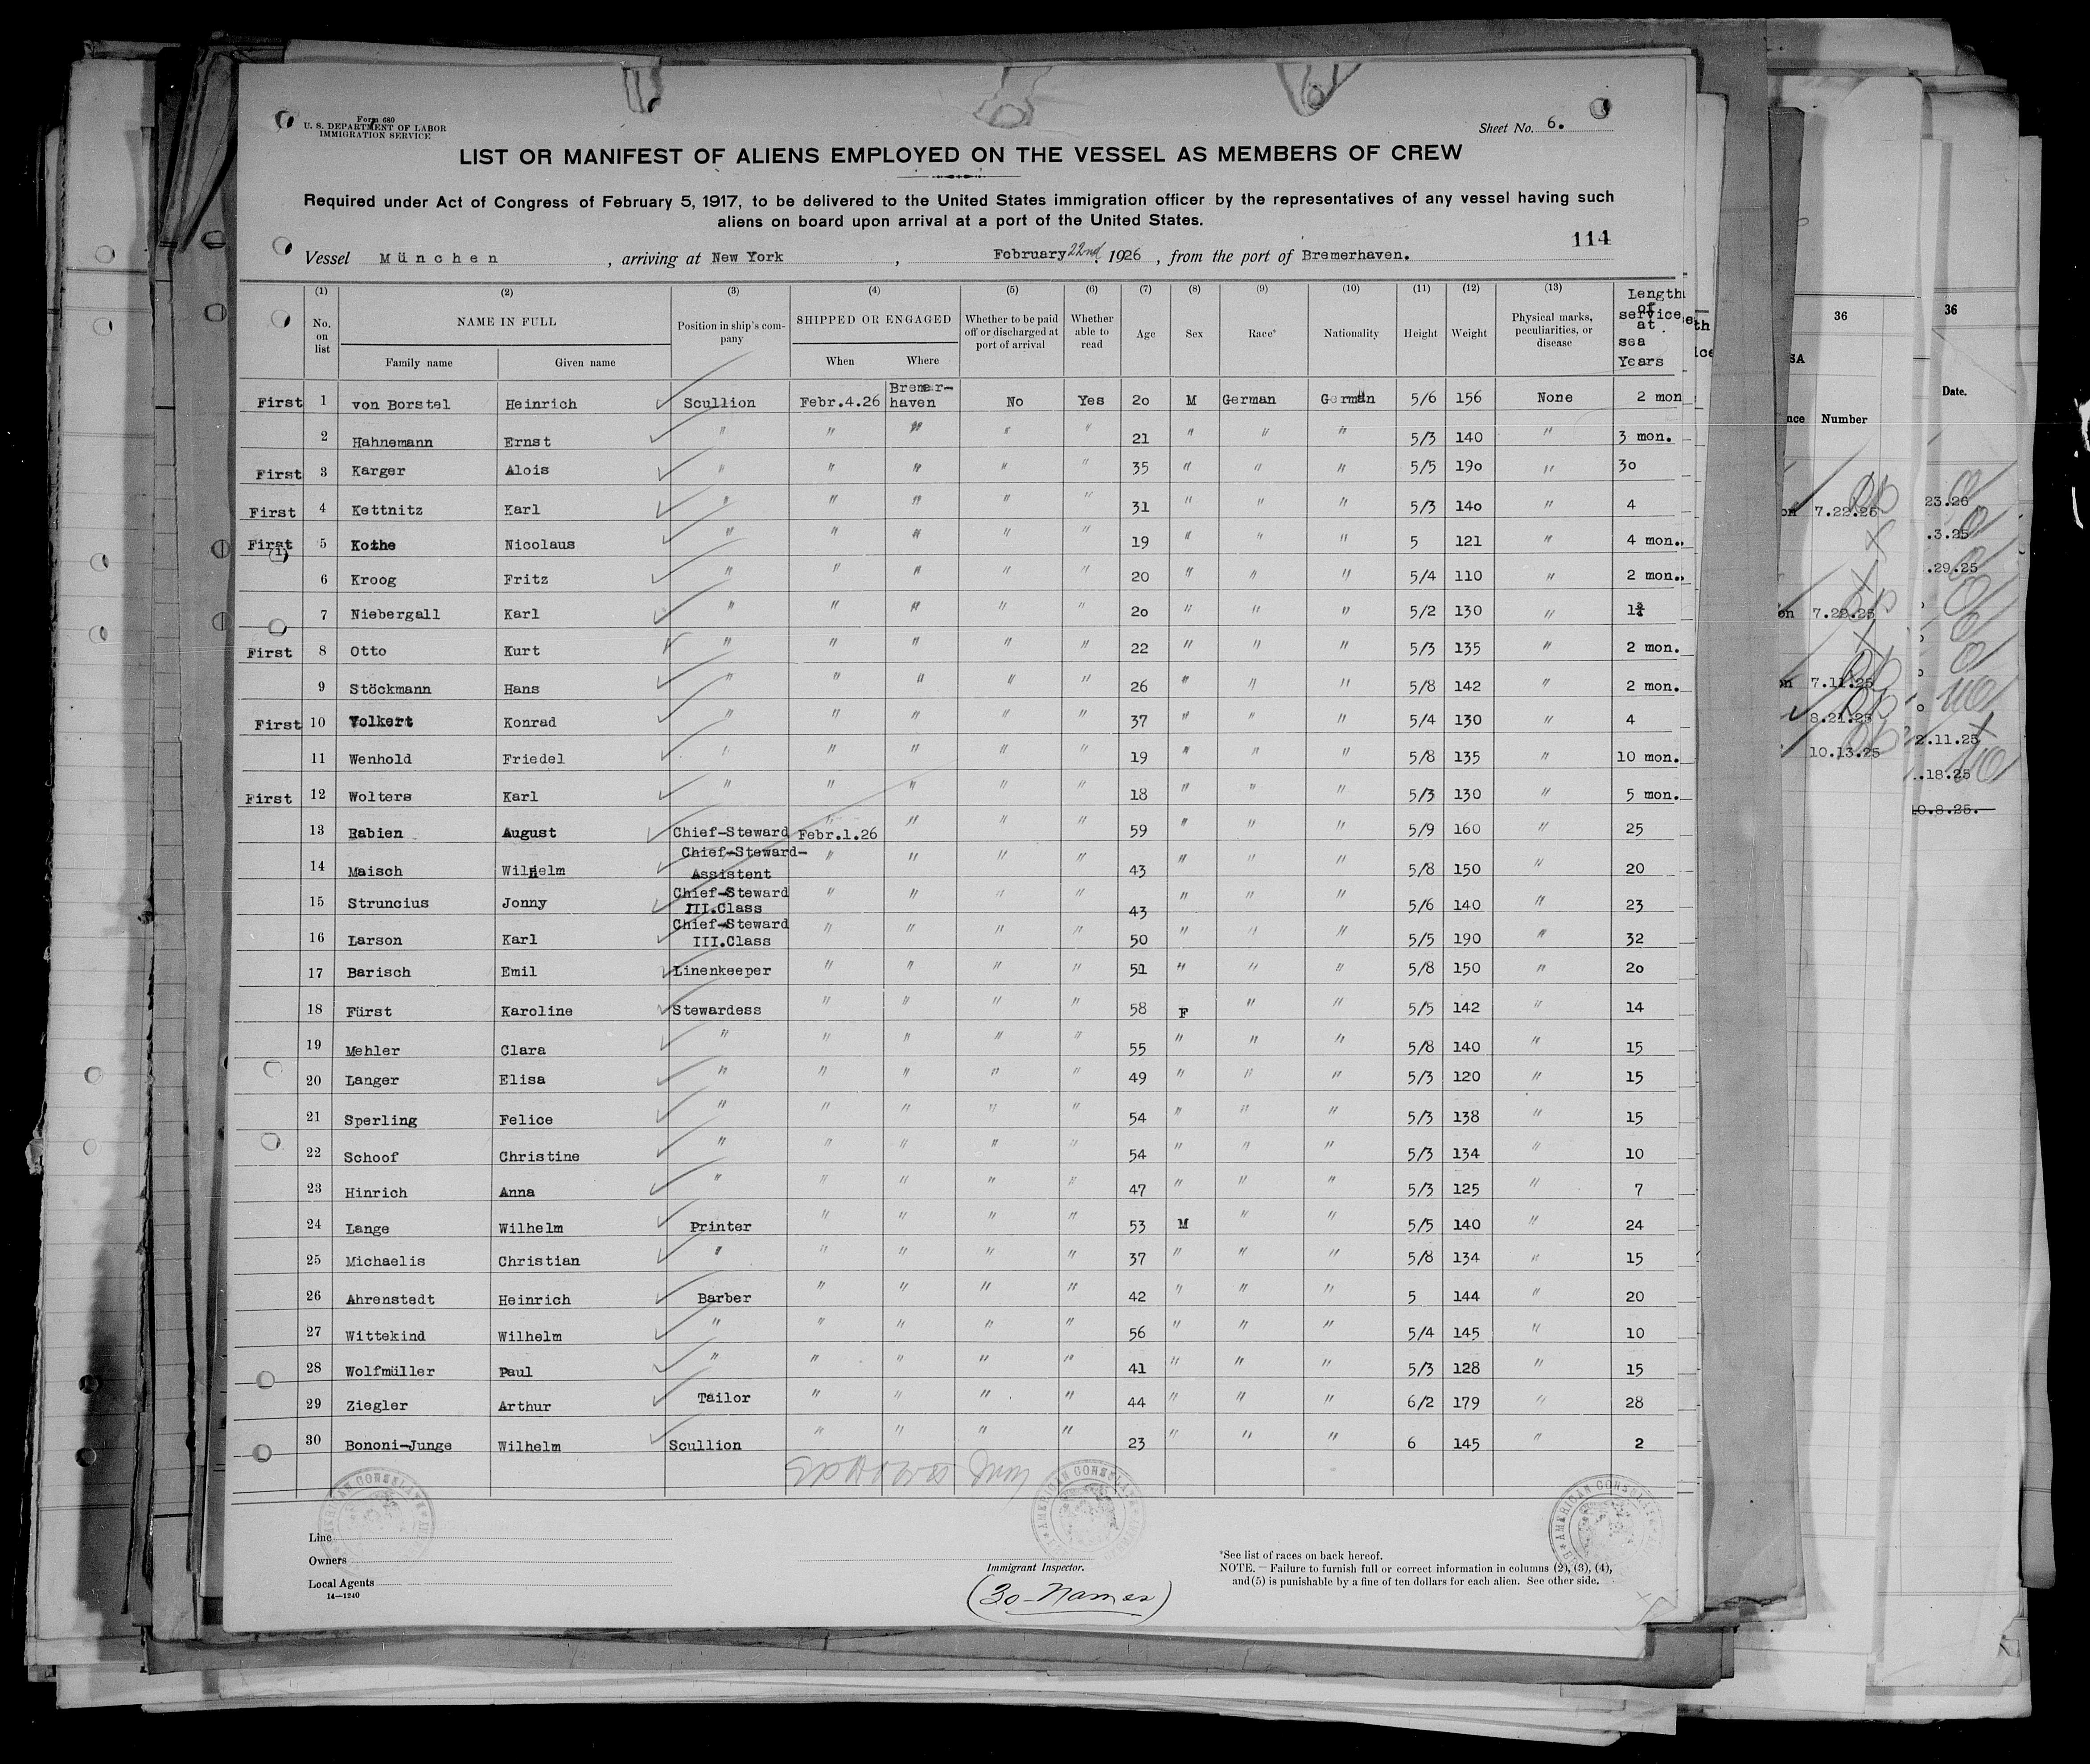 Form 680
U. S. DEPARTMENT OF LABOR
IMMIGRATION SERVICE
Sheet No. 6.
LIST OR MANIFEST OF ALIENS EMPLOYED ON THE VESSEL AS MEMBERS OF CREW
Required under Act of Congress of February 5, 1917, to be delivered to the United States immigration officer by the representatives of any vessel having such
aliens on board upon arrival at a port of the United States.
114
Vessel München, arriving at New York, February 22nd, 1926, from the port of Bremerhaven.
(1) (2) (3) (4) (5) (6) (7) (8) (9) (10) (11) (12) (13)
No. on list NAME IN FULL Family name Given name Position in ship's company SHIPPED OR ENGAGED When Where Whether to be paid off or discharged at port of arrival Whether able to read Age Sex Race* Nationality Height Weight Physical marks, peculiarities, or disease Length of service at sea Years
First 1 von Borstel Heinrich Scullion Febr.4.26 Bremer-haven No Yes 2o M German German 5/6 156 None 2 mon
2 Hahnemann Ernst " " " " " 21 " " " 5/3 140 " 3 mon.
First 3 Karger Alois " " " " " 35 " " " 5/5 19o " 3o
First 4 Kettnitz Karl " " " " " 31 " " " 5/3 14o " 4
First (1) 5 Kothe Nicolaus " " " " " 19 " " " 5 121 " 4 mon.
6 Kroog Fritz " " " " " 20 " " " 5/4 110 " 2 mon.
7 Niebergall Karl " " " " " 2o " " " 5/2 130 "
First 8 Otto Kurt " " " " " 22 " " " 5/3 135 " 2 mon.
9 Stöckmann Hans " " " " " 26 " " " 5/8 142 " 2 mon.
First 10 Volkert Konrad " " " " " 37 " " " 5/4 130 " 4
11 Wenhold Friedel " " " " " 19 " " " 5/8 135 " 10 mon.
First 12 Wolters Karl " " " " " 18 " " " 5/3 130 " 5 mon.
13 Rabien August Chief-Steward Febr.1.26 " " " 59 " " " 5/9 160 " 25
14 Maisch Wilhelm Chief-Steward-Assistent " " " " 43 " " " 5/8 150 " 20
15 Struncius Jonny Chief-Steward III.Class " " " " 43 " " " 5/6 140 " 23
16 Larson Karl Chief-Steward III.Class " " " " 50 " " " 5/5 190 " 32
17 Barisch Emil Linenkeeper " " " " 51 " " " 5/8 150 " 2o
18 Fürst Karoline Stewardess " " " " 58 F " " 5/5 142 " 14
19 Mehler Clara " " " " " 55 " " " 5/8 140 " 15
20 Langer Elisa " " " " " 49 " " " 5/3 120 " 15
21 Sperling Felice " " " " " 54 " " " 5/3 138 " 15
22 Schoof Christine " " " " " 54 " " " 5/3 134 " 10
23 Hinrich Anna " " " " " 47 " " " 5/3 125 " 7
24 Lange Wilhelm Printer " " " " 53 M " " 5/5 140 " 24
25 Michaelis Christian " " " " " 37 " " " 5/8 134 " 15
26 Ahrenstedt Heinrich Barber " " " " 42 " " " 5 144 " 20
27 Wittekind Wilhelm " " " " " 56 " " " 5/4 145 " 10
28 Wolfmüller Paul " " " " " 41 " " " 5/3 128 " 15
29 Ziegler Arthur Tailor " " " " 44 " " " 6/2 179 " 28
30 Bononi-Junge Wilhelm Scullion " " " " 23 " " " 6 145 " 2
AMERICAN CONSULATE
AMERICAN CONSULATE
AMERICAN CONSULATE
Line
Owners
Local Agents
14—1240
Immigrant Inspector.
(30-Names)
*See list of races on back hereof.
NOTE.—Failure to furnish full or correct information in columns (2), (3), (4),
and (5) is punishable by a fine of ten dollars for each alien. See other side.
36
Number
7.22.26
7.22.25
7.11.25
8.21.25
10.13.25
36
Date.
23.26
.3.25
.29.25
2.11.25
.18.25
10.8.25.